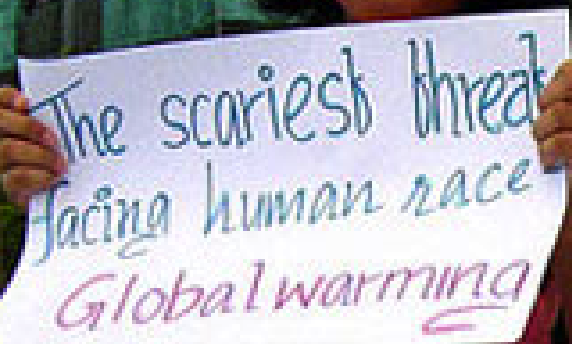 The scariest threat
facing human race
Global warming